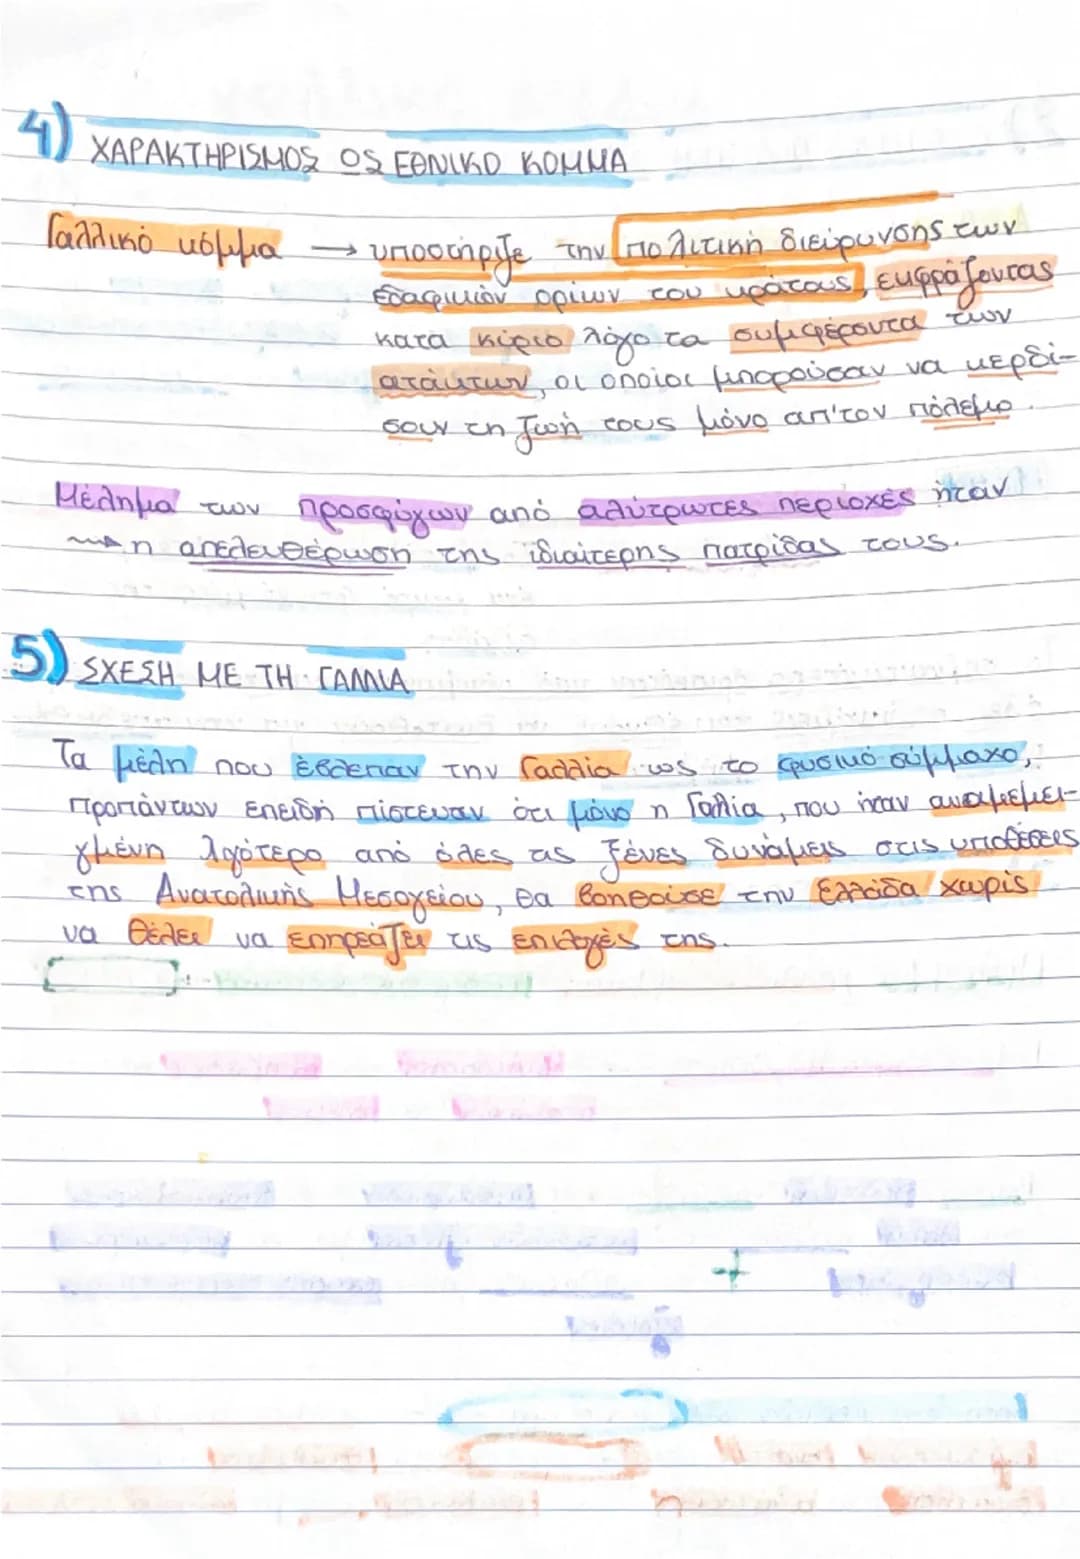 4) ΧΑΡΑΚΤΗΡΙΣΜΟΣ ΩΣ ΕΘΝΙΚΟ ΚΟΜΜΑ
Γαλλικό κόμμα → υποστήριζε την πολιτική διεύρυνσης των
εδαφικών ορίων του κράτους, εκφράζοντας
κατά κύριο λόγο τα συμφέροντα των
ατάκτων, οι οποίοι μπορούσαν να κερδί-
σουν τη ζωή τους μόνο απ'τον πόλεμο.
Μέλημα των προσφύγων από αλύτρωτες περιοχές ήταν
→ η απελευθέρωση της ιδιαίτερης πατρίδας τους.
5) ΣΧΕΣΗ ΜΕ ΤΗ ΓΑΛΛΙΑ
Τα μέλη που έβλεπαν την Γαλλία ως το φυσικό σύμμαχο,
προπάντων επειδή πίστευαν ότι μόνο η Γαλλία, που ήταν αναμεμει-
γμένη λιγότερο από όλες τις ξένες δυνάμεις στις υποθέσεις
της Ανατολικής Μεσογείου, θα βοηθούσε την Ελλάδα χωρίς
να θέλει να επηρεάζει τις επιλογές της.